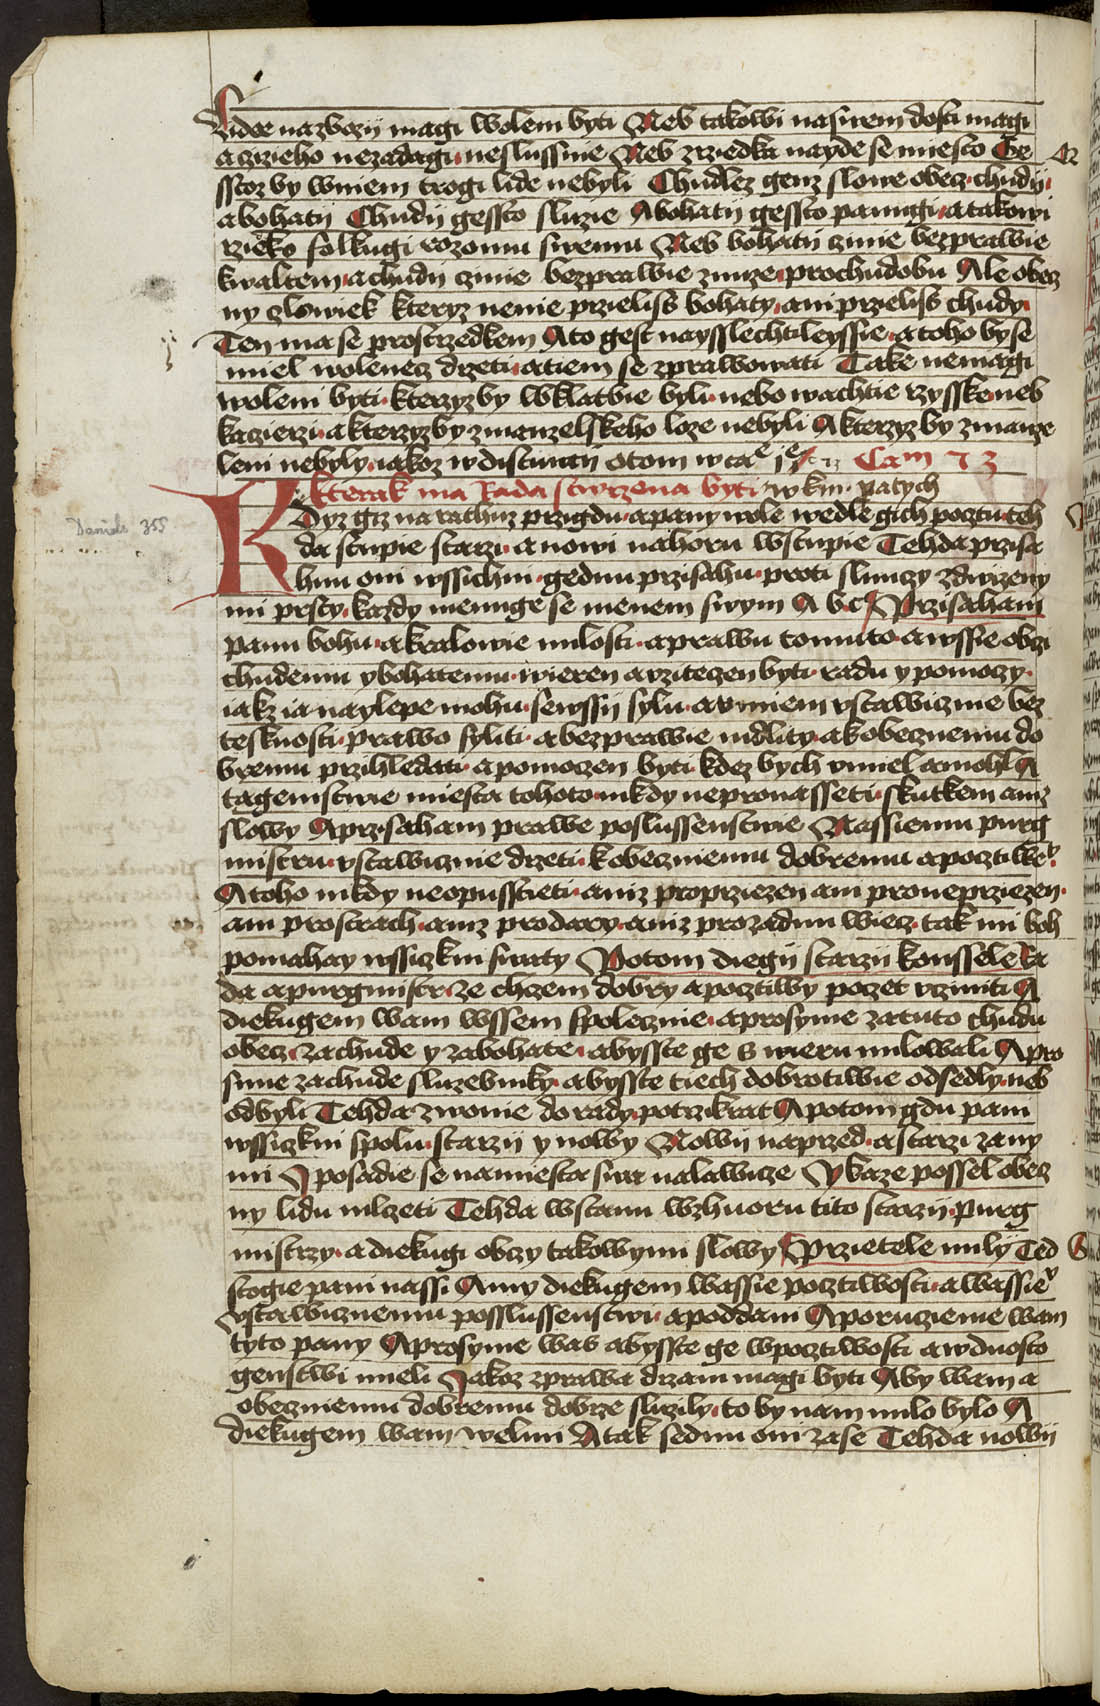 Lide nazbozij magi wolem byti Neb takowi nasirem dosti magi
a czizieho nezadagi neslussnie Neb zrziedka nayde se miesto Ge
sstoz by wniem trogi lide nebyli Chudlez genz slowe obecz chudij
a bohatij Chudij gessto sluzie A bohatij gessto panugi a takowi
rzieko folkugi rozomu swemu Neb bohatij czinie bezprawie
kwaltem a chudij czinie bezprawie znuze prochudobu Ale obecz
ny czlowiek kteryz nenie przielis bohaty ani przielis chudy
Ten ma se prostrzedkem A to gest naysslechtileyssie a toho by se
miel wolenecz drzeti a tiem se zprawowati Take nemagi
woleni byti kterzyz by wklatbie byli nebo wachtie rzysske neb
kacierzi a kterzyz by zmanzelskeho loze nebyli A kterzyz by zmanze
leni nebyly iakoz wdistinctij otom
kterak ma Rada stwrzena byti w km patych
Kdyz giz na rathuz przigdu a pany wole wedle gich pocztu teh
da stupie starzi a nowi nahoru wstupie Tehda przisa
hnu oni wssichni gednu przisahu proti sluncy zdwizeny
mi prsty kazdy menuge se menem swym A b c Przisaham
panu bohu a kralowie milosti a prawu tomuto a wssie obci
chudemu y bohatemu wieren a vzitecen byti radu y pomoczy
iakz ia naylepe mohu se wssij sylu a vmiem vstawicznie bez
tesknosti prawo syliti a bezprawie mdlity a k obecznemu do
bremu przihledati a pomoczen byti kdez bych vmiel a mohl A
tagemstwie miesta tohoto nikdy nepronasseti skutkem aniz
slowy A przisaham prawe poslussenstwie Nassiemu purg
mistru vstawicznie drzeti k obeczniemu dobremu a pocztiwe
A toho nikdy neopusstieti aniz proprziezen ani proneprziezen
ani prostrach aniz prodary aniz prozadnu wiecz tak mi boh
pomahay wssiczkni swaty Potom diegij starzij konssele Ra
da a purgmistr ze chzem dobry a pocztiwy poczet vcziniti A
diekugem wam wssem spolecznie a prosyme za tuto chudu
obecz za chude y za bohate abysste ge s wieru milowali A pro
sime za chude sluzebniky abysste tiech dobrotiwie odsedly neb
odbyli Tehda zwonie do rady potrzikrat A potom gdu pani
wssiczkni spolu starzij y nowy Nowij naprzed a starzi za ny
mi I posadie se na miesta swa na lawicze I kaze possel obecz
ny lidu mlczeti Tehda wstanu wzhuoru tito starzij purg
mistrzy a diekugi obczy takowymi slowy Przietele mily Ted
stogie pani nassi A my diekugem wassie pocztiwosti a wassie
vstawicznemu posslussenstwi a poddani A poruczieme wam
tyto pany A prosyme was abysste ge wpocztiwosti a wduosto
genstwi mieli Iakoz zprawa drzani magi byti Aby wam a
obeczniemu dobremu dobrze sluzily to by nam milo bylo A
diekugem wam welmi A tak sednu oni zase Tehda nowij